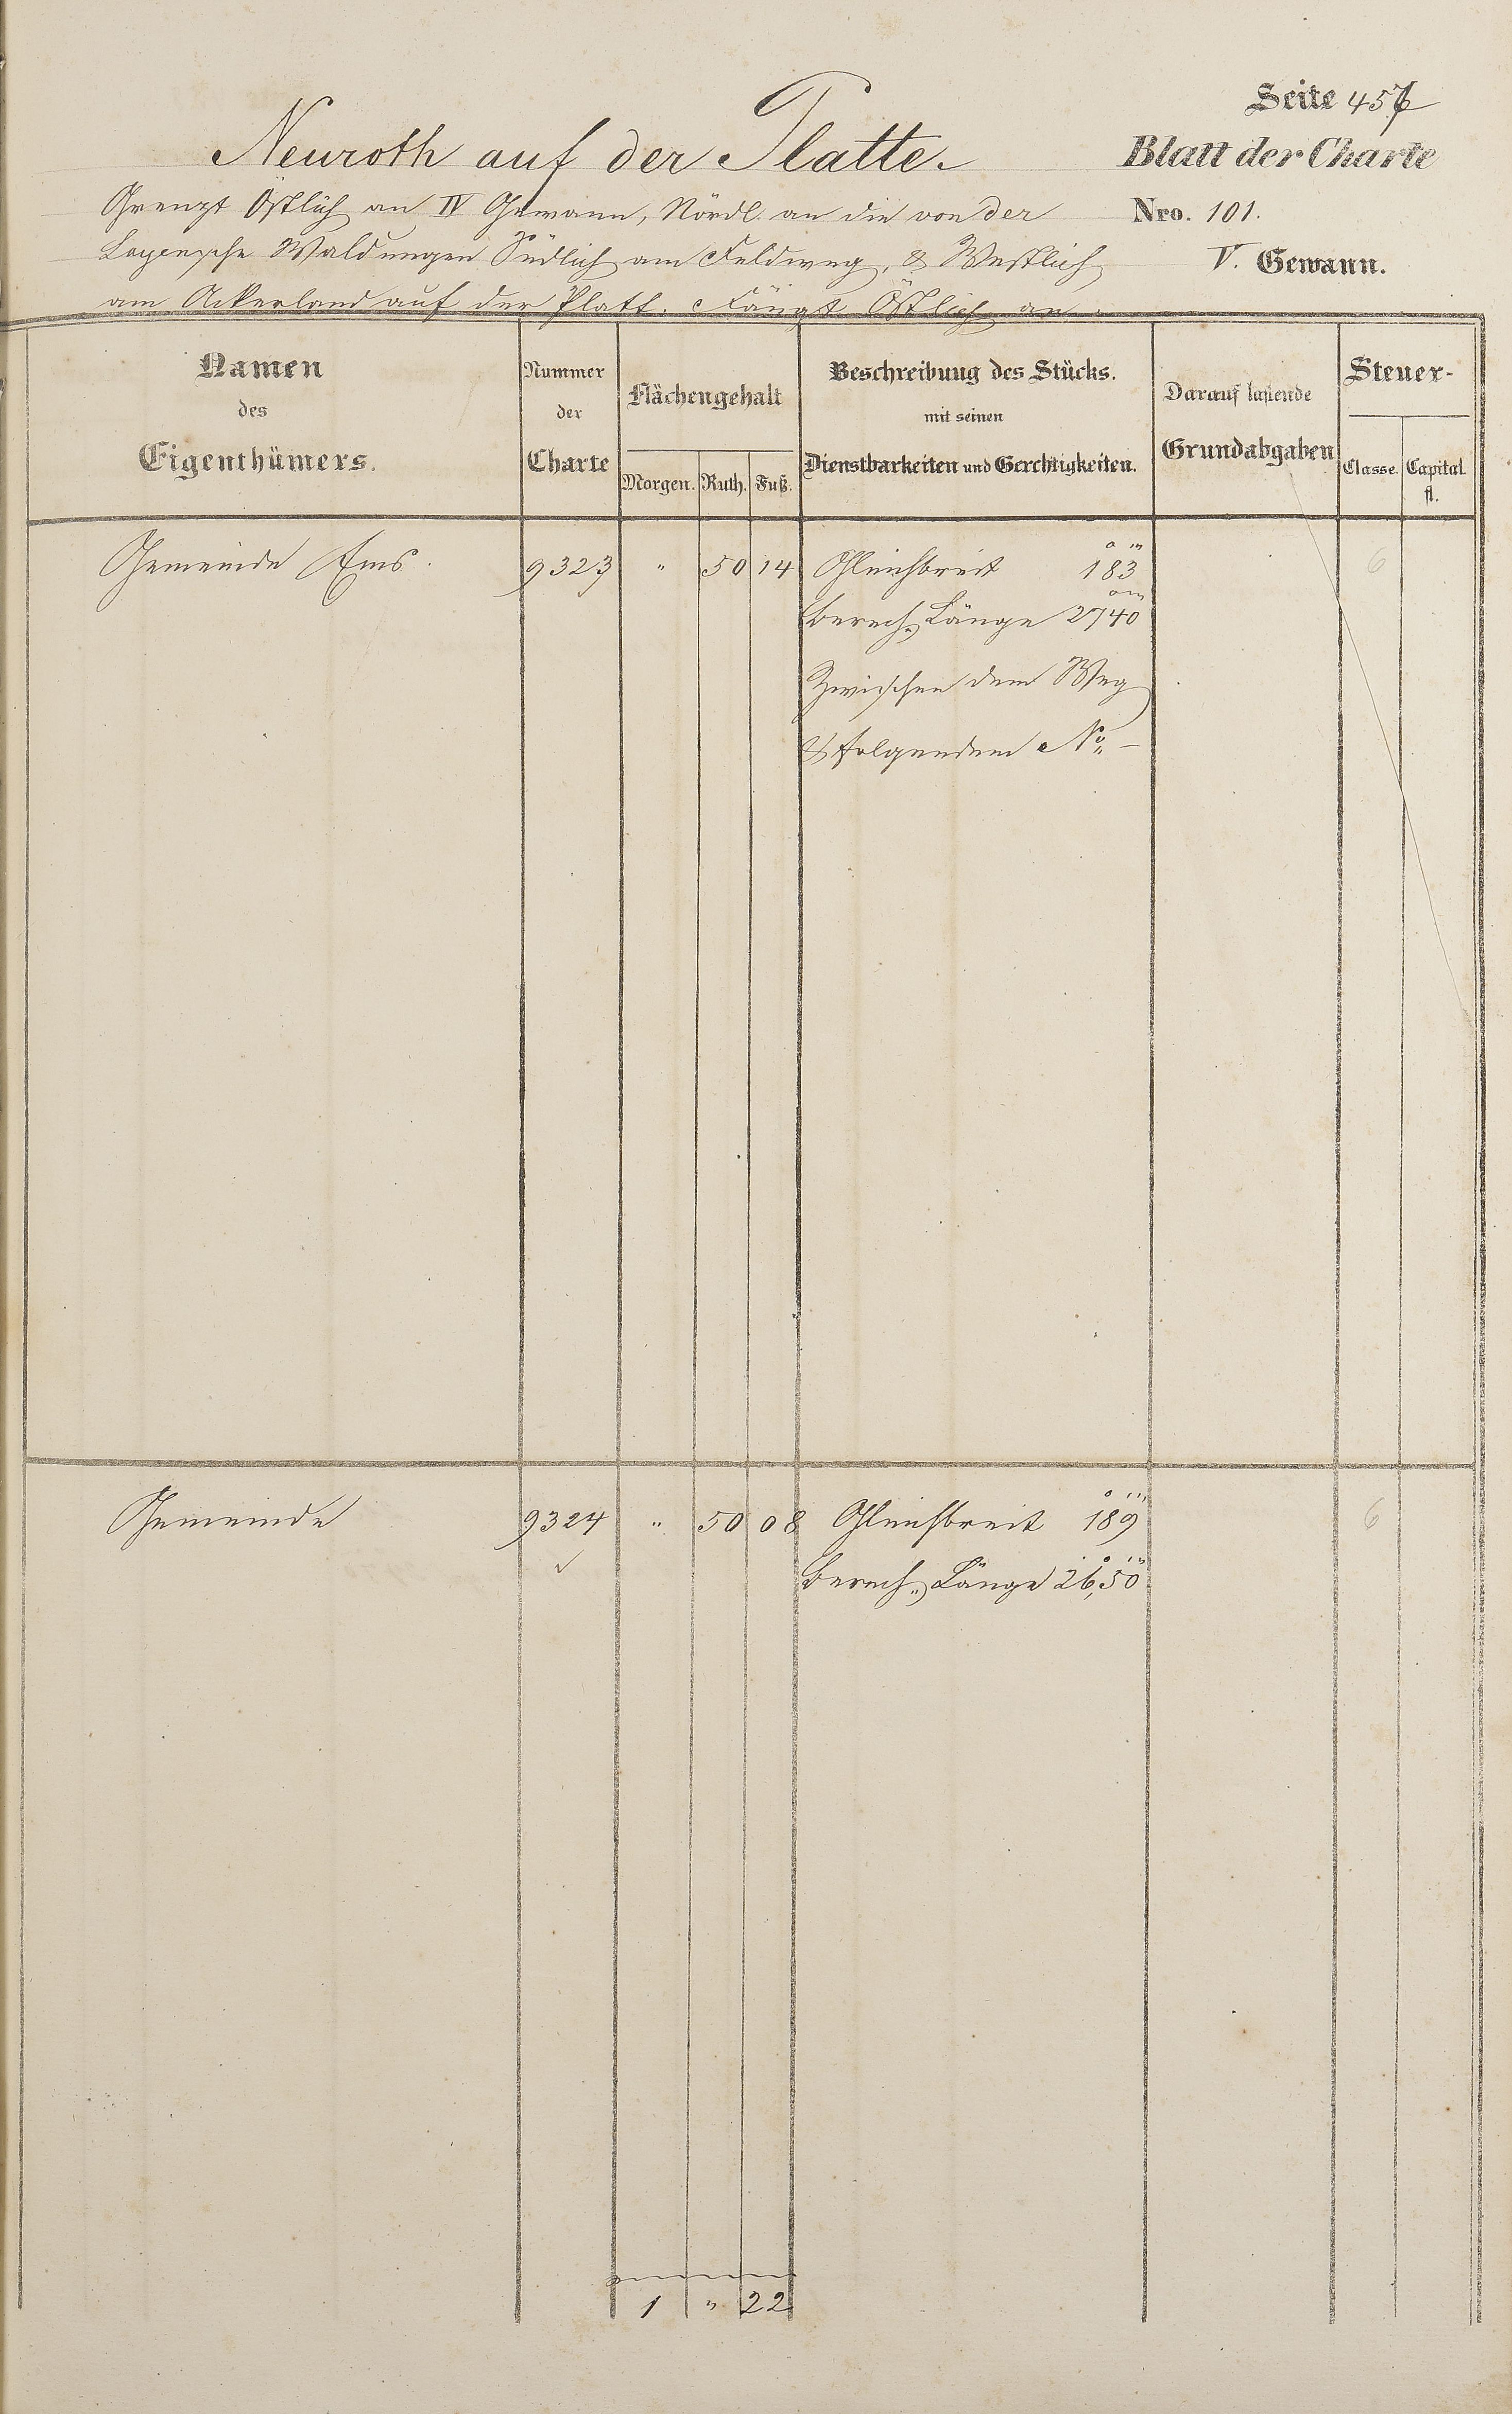 Seite 457
Neuroth auf der Platte.
Blatt der Charte
Grenzt Östlich an IV Gewann, Nördl. an die von der
Nro. 101.
Leyensche Waldungen Südlich am Feldweg, & Westlich
V. Gewann.
am Ackerland auf der Platt. Fängt Östlich an.
Namen des Eigenthümers.
Nummer der Charte
Flächengehalt
Morgen. Ruth. Fuß.
Beschreibung des Stücks.
mit seinen
Dienstbarkeiten und Gerechtigkeiten.
Darauf lastende
Grundabgaben
Steuer-
Classe. Capital.
fl.
Gemeinde Ems. 9323 " 50 14 Gleichbreit 1°83''' 6
berech. Länge 27°40'''
Zwischen dem Weg
& folgendem No. –
Gemeinde 9324 " 50 08 Gleichbreit 1°89''' 6
berech. Länge 26,°50'''
1 " 22